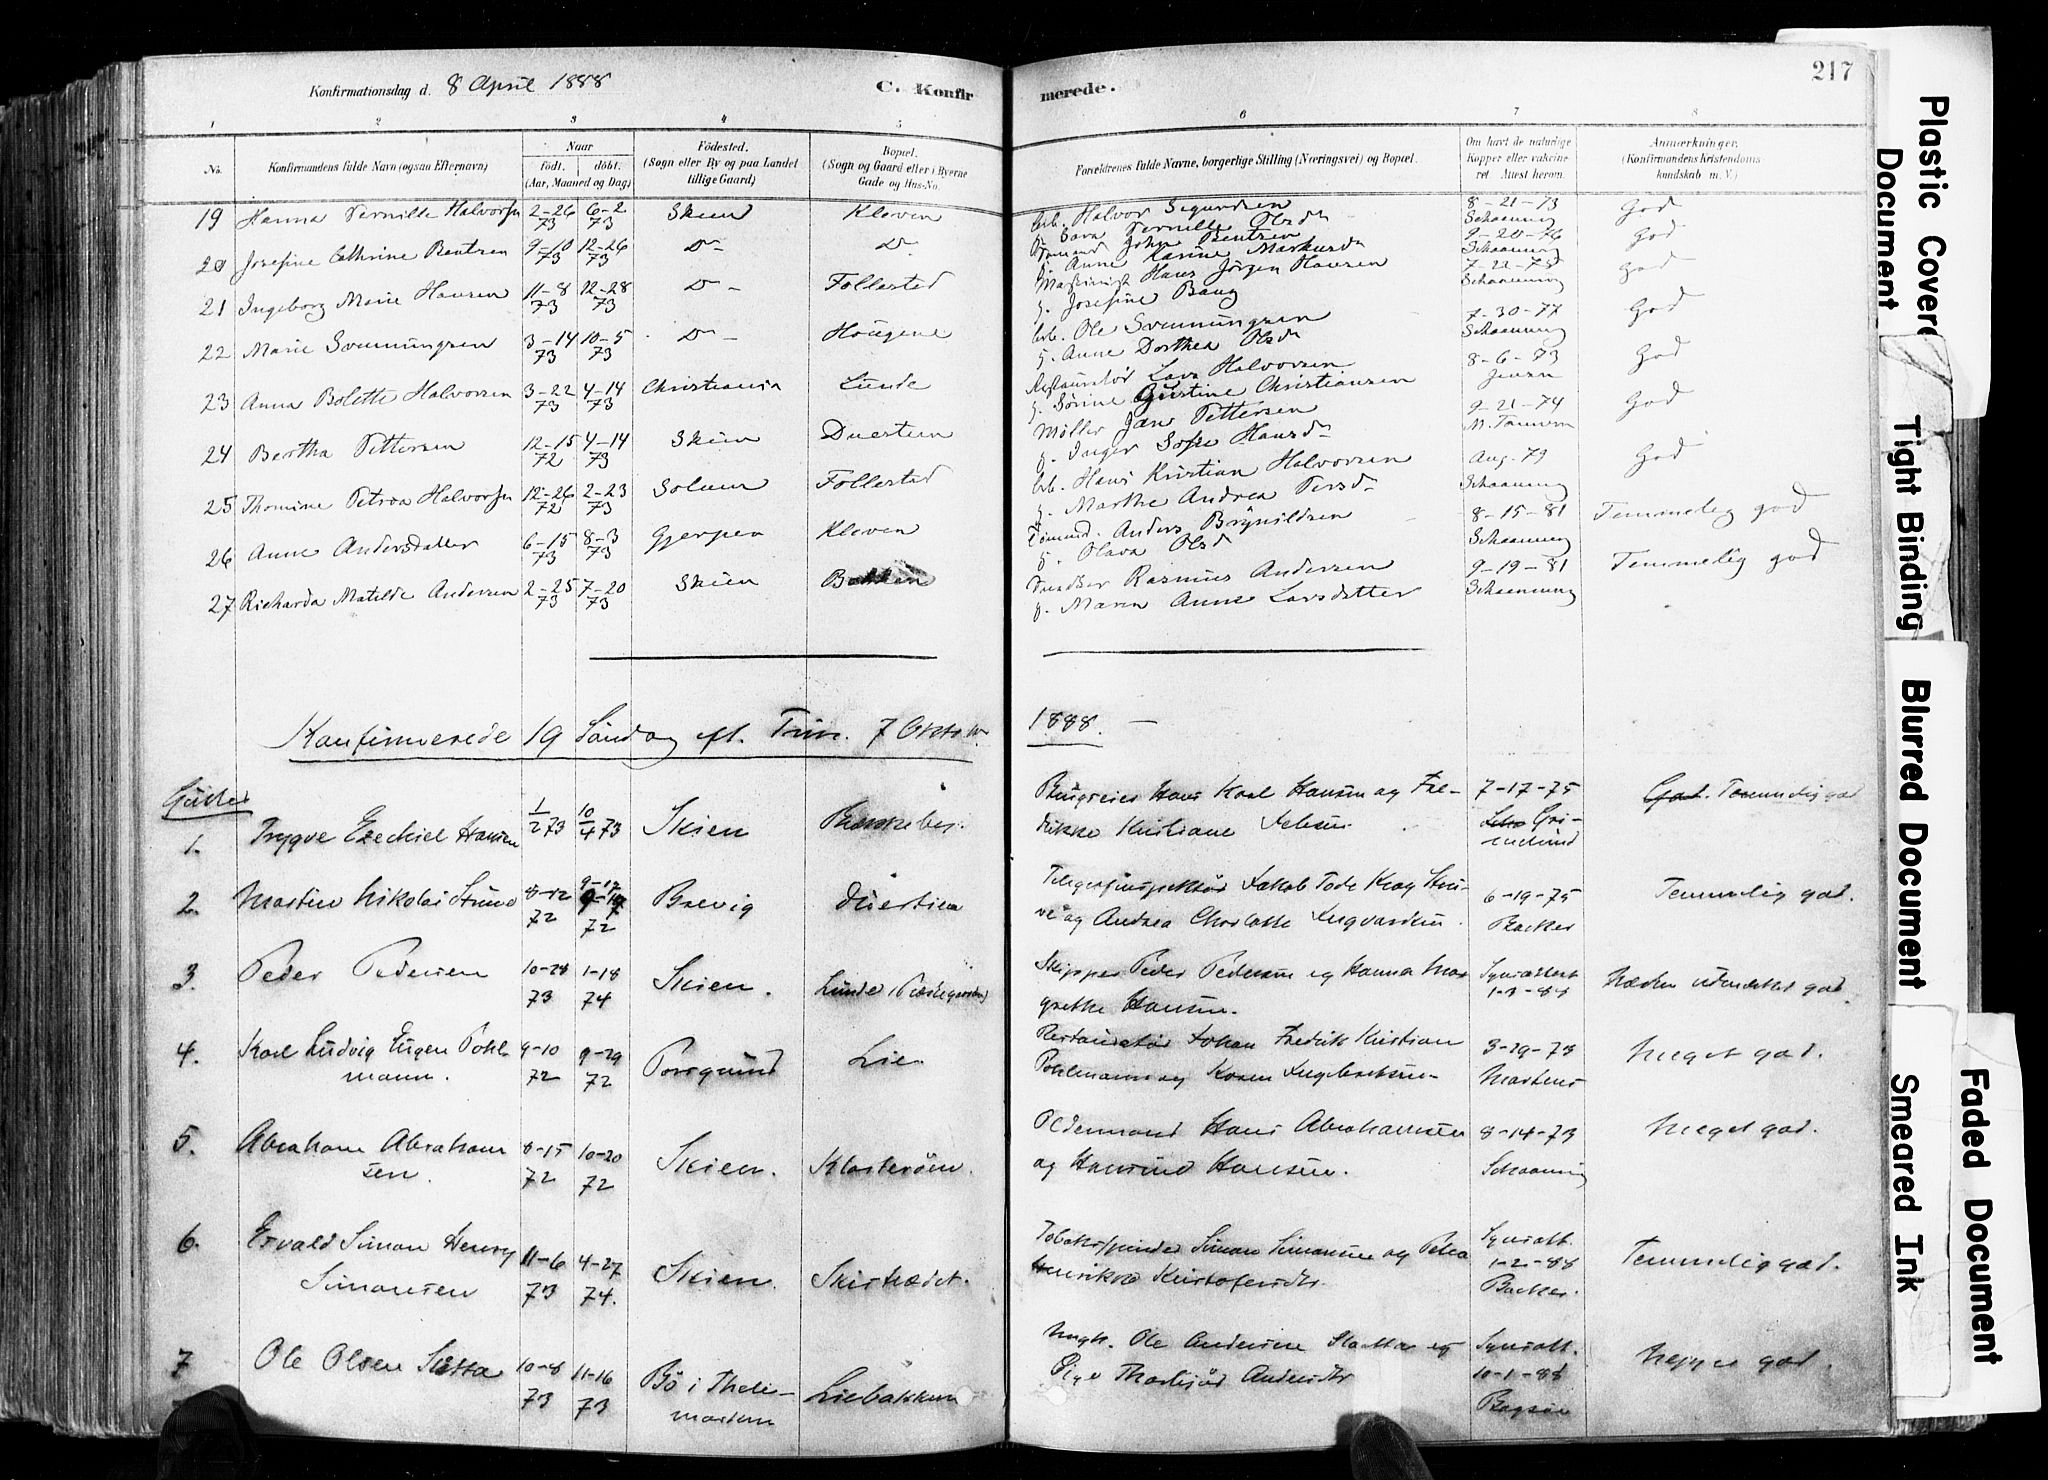 Konfirmationsdag d. 8 April 1888
C. Konfir
merede.
217
1 2 3 4 5 6 7 8
No.
Konfirmandens fulde Navn (ogsaa Efternavn)
Naar
födt. döbt.
(Aar, Maaned og Dag)
Födested.
(Sogn eller By og paa Landet
tillige Gaard)
Bopæl.
(Sogn og Gaard eller i Byerne
Gade og Hus-No.
Forældrenes fulde Navne, borgerlige Stilling (Næringsvei) og Bopæl.
Om havt de naturlige
Kopper eller vakcine-
ret. Attest herom.
Anmærkninger.
(Konfirmandens Kristendoms-
kundskab m. V.)
19 Hanna Pernille Halvorsen 2-26 73 6-2 73 Skien Kleven Halvor Segundsen Pernille Olsd 8-21-73 Schaanning God
20 Josefine Cathrine Bentzen 9-10 73 12-26 73 Do Do John Bentzen Anne Karine Markusd 9-20-76 Schaanning God
21 Ingeborg Marie Hansen 11-8 73 12-28 73 Do Follestad Maskinist Hans Jörgen Hansen g. Josefine Bang Schaanning God
22 Marie Svennungsen 3-14 73 10-5 73 Do Hougene Arb. Ole Svennungsen g. Anne Dorthea Olsd 7-30-77 Schaanning God
23 Anna Bolette Halvorsen 3-22 73 4-14 73 Christiania Lunde Restauratör Lars Halvorsen g. Sörine Christiansen 8-6-73 Jensen God
24 Bertha Pettersen 12-15 72 4-14 73 Skien Duestien Möller Jan Pettersen g. Inger Sofie Hansd 9-21-74 God
25 Thomine Petrea Halvorsen 12-26 72 2-23 73 Solum Follestad Arb. Hans Kristian Halvorsen g. Marthe Andrea Persd Aug. 79 Schaanning God
26 Anne Andersdatter 6-15 73 8-3 73 Gjerpen Kleven Tömmd. Anders Brynildsen g. Olava Olsd 8-15-81 Schaanning Temmelig god
27 Richarda Matilde Andersen 2-25 73 7-20 73 Skien Bakken Snedker Rasmus Andersen g. Maren Anne Larsdatter 9-19-81 Schaanning Temmelig god
Konfirmerede 19 Söndag eft. Trin. 7 Oktobr.
1888.
Gutter
1. Trygve Ezechiel Hansen 1/2 73 10/4 73 Skien Hans Karl Hansen og Fre-
drikke Kristiane 7-17-75 God. Temmelig god
2. Martin Nikolai Struve 8-12 72 9-17 72 Brevig Duestien Telegrafinspektör Jakob Tode Krag Stru-
ve og Andrea Charlotte Ingvardsen 6-19-75 Backer Temmelig god.
3. Peder Pedersen 10-28 73 1-18 74 Skien. Lunde Skipper Peder Pedersen og Hanna Mar
grethe Hansen. Synsattest 1-3-88 Næsten udmærket god.
4. Karl Ludvig Eugen Pohl
mann. 9-10 72 9-29 72 Porsgrund Lie Restauratör Johan Fredrik Kristian
Pohlmann og Karen Ingebretsen 3-29-73 Martens Meget god.
5. Abraham Abraham
sen. 8-15 72 10-20 72 Skien. Klosteröen. Oldermand Hans Abrahamsen
og Hansine Hansen. 8-14-73 Schaanning Meget god.
6. Edvald Simon Henry
Simonsen 11-6 73 4-27 74. Skien. Skistrædet. Tobakspinder Simon Simonsen og Petra
Henrikke Kristofersdtr. Synsatt. 1-2-88 Backer. Temmelig god.
7 Ole Olsen Slotta 10-8 73 11-16 73 Bö i Thele-
marken Liebakken Ungk. Ole Andersen Slaatta og
Pige Thorbjör Andersdtr Synsatt. 10-1-88 Neppe god.
Plastic Covered
Document
Tight Binding
Blurred Document
Faded Document
Smeared Ink